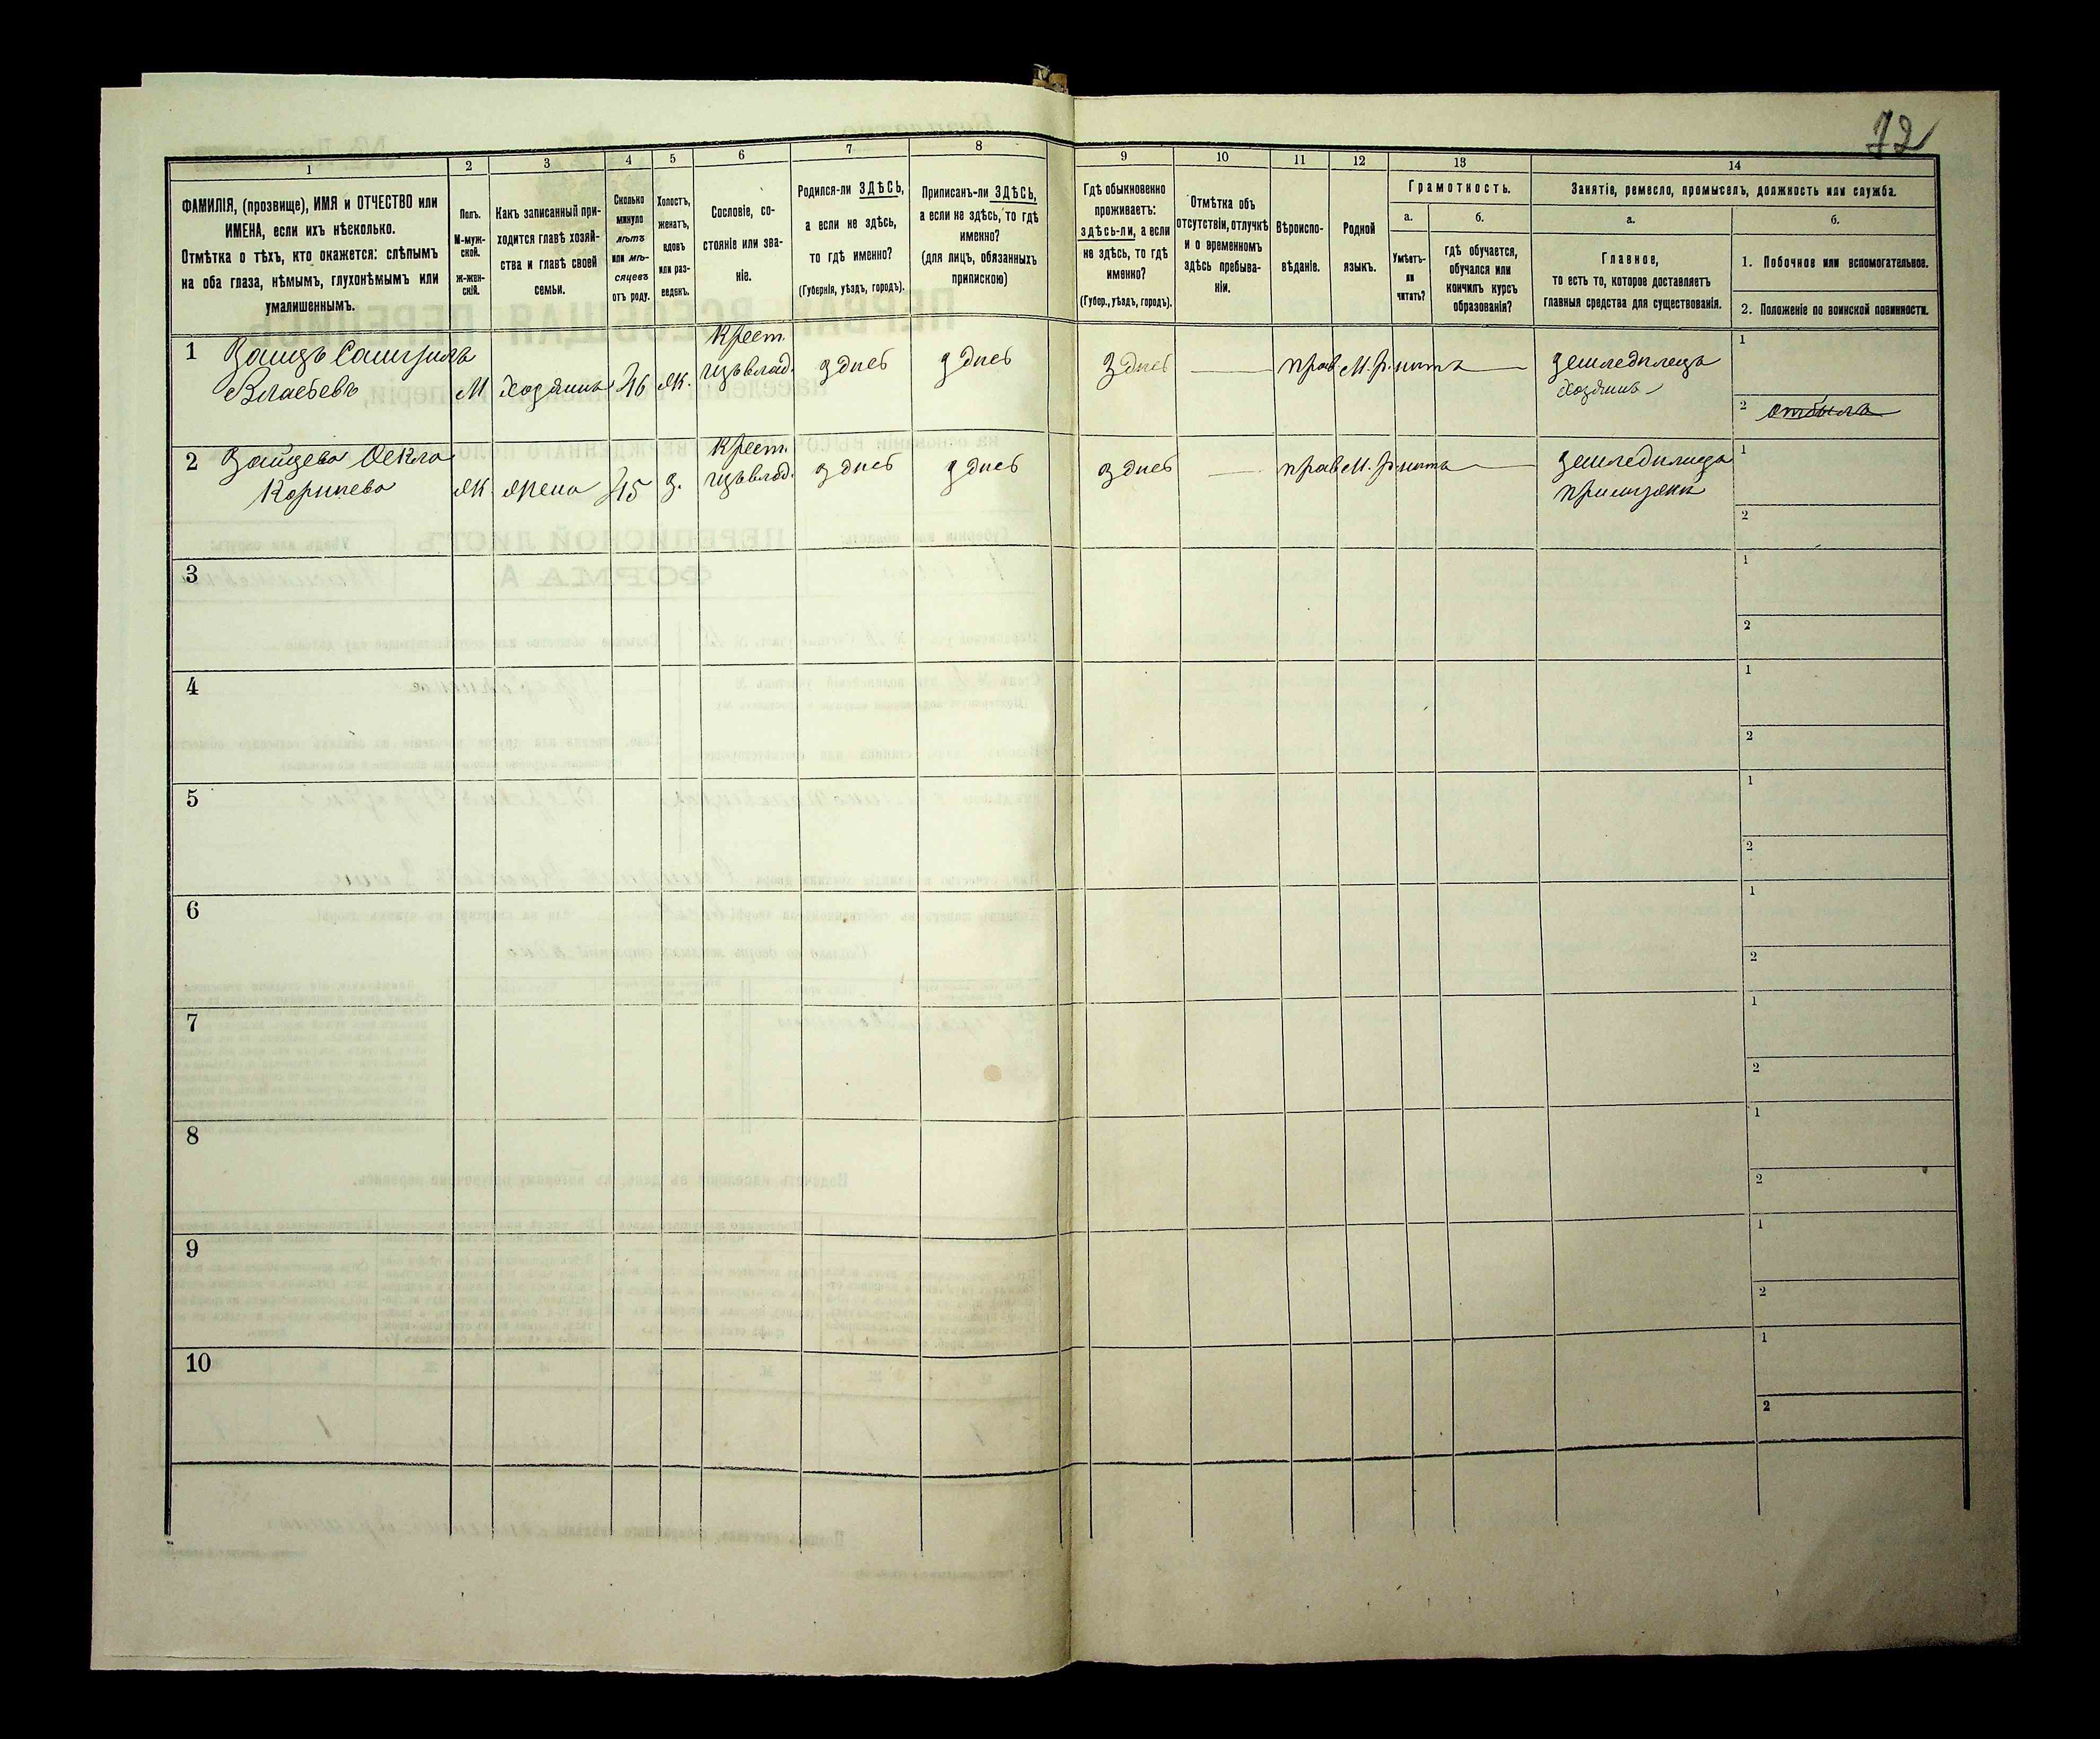 72
1 2 3 4 5 6 7 8 9 10 11 12 13 14
ФАМИЛІЯ, (прозвище), ИМЯ и ОТЧЕСТВО или
ИМЕНА, если ихъ нѣсколько.
Отмѣтка о тѣхъ, кто окажется: слѣпымъ
на оба глаза, нѣмымъ, глухонѣмымъ или
умалишеннымъ.
Полъ.
М-муж-
ской.
ж-жен-
скій.
Какъ записанный при-
ходится главѣ хозяй-
ства и главѣ своей
семьи.
Сколько
минуло
лѣтъ
или мѣ-
сяцевъ
отъ роду.
Холостъ,
женатъ,
вдовъ
или раз-
веденъ.
Сословіе, со-
стояніе или зва-
ніе.
Родился-ли ЗДѢСЬ,
а если не здѣсь,
то гдѣ именно?
(Губернія, уѣздъ, городъ).
Приписанъ-ли ЗДѢСЬ,
а если не здѣсь, то гдѣ
именно?
(для лицъ, обязанныхъ
припискою)
Гдѣ обыкновенно
проживаетъ:
здѣсь-ли, а если
не здѣсь, то гдѣ
именно?
(Губер., уѣздъ, городъ).
Отмѣтка объ
отсутствіи, отлучкѣ
и о временномъ
здѣсь пребыва-
ніи.
Вѣроиспо-
вѣданіе.
Родной
языкъ.
Грамотность.
а.
Умѣетъ-
ли
читать?
б.
гдѣ обучается,
обучался или
кончилъ курсъ
образованія?
Занятіе, ремесло, промыселъ, должность или служба.
а.
Главное,
то есть то, которое доставляетъ
главныя средства для существованія.
б.
1. Побочное или вспомогательное.
2. Положеніе по воинской повинности.
1 Заицъ
М хозяинъ 46 ж. Крест. здесь здесь здесь — прав. М.р. нѣтъ — земледѣлецъ
хозяинъ
1
2 отбылъ
2 Зайцева Фекла
ж жена 45 з. Крест. здесь здесь здесь — прав М.р. нѣтъ — земледѣлица
1
2
3 1
2
4 1
2
5 1
2
6 1
2
7 1
2
8 1
2
9 1
2
10 1
2